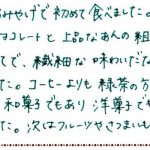 おみやげで初めて食べました。
ョコレートと上品なあんの組
で、繊細な味わいだな
た。コーヒーよりも緑茶の方
和菓子でもあり洋菓子でも
た。次はフルーツやさつまいも